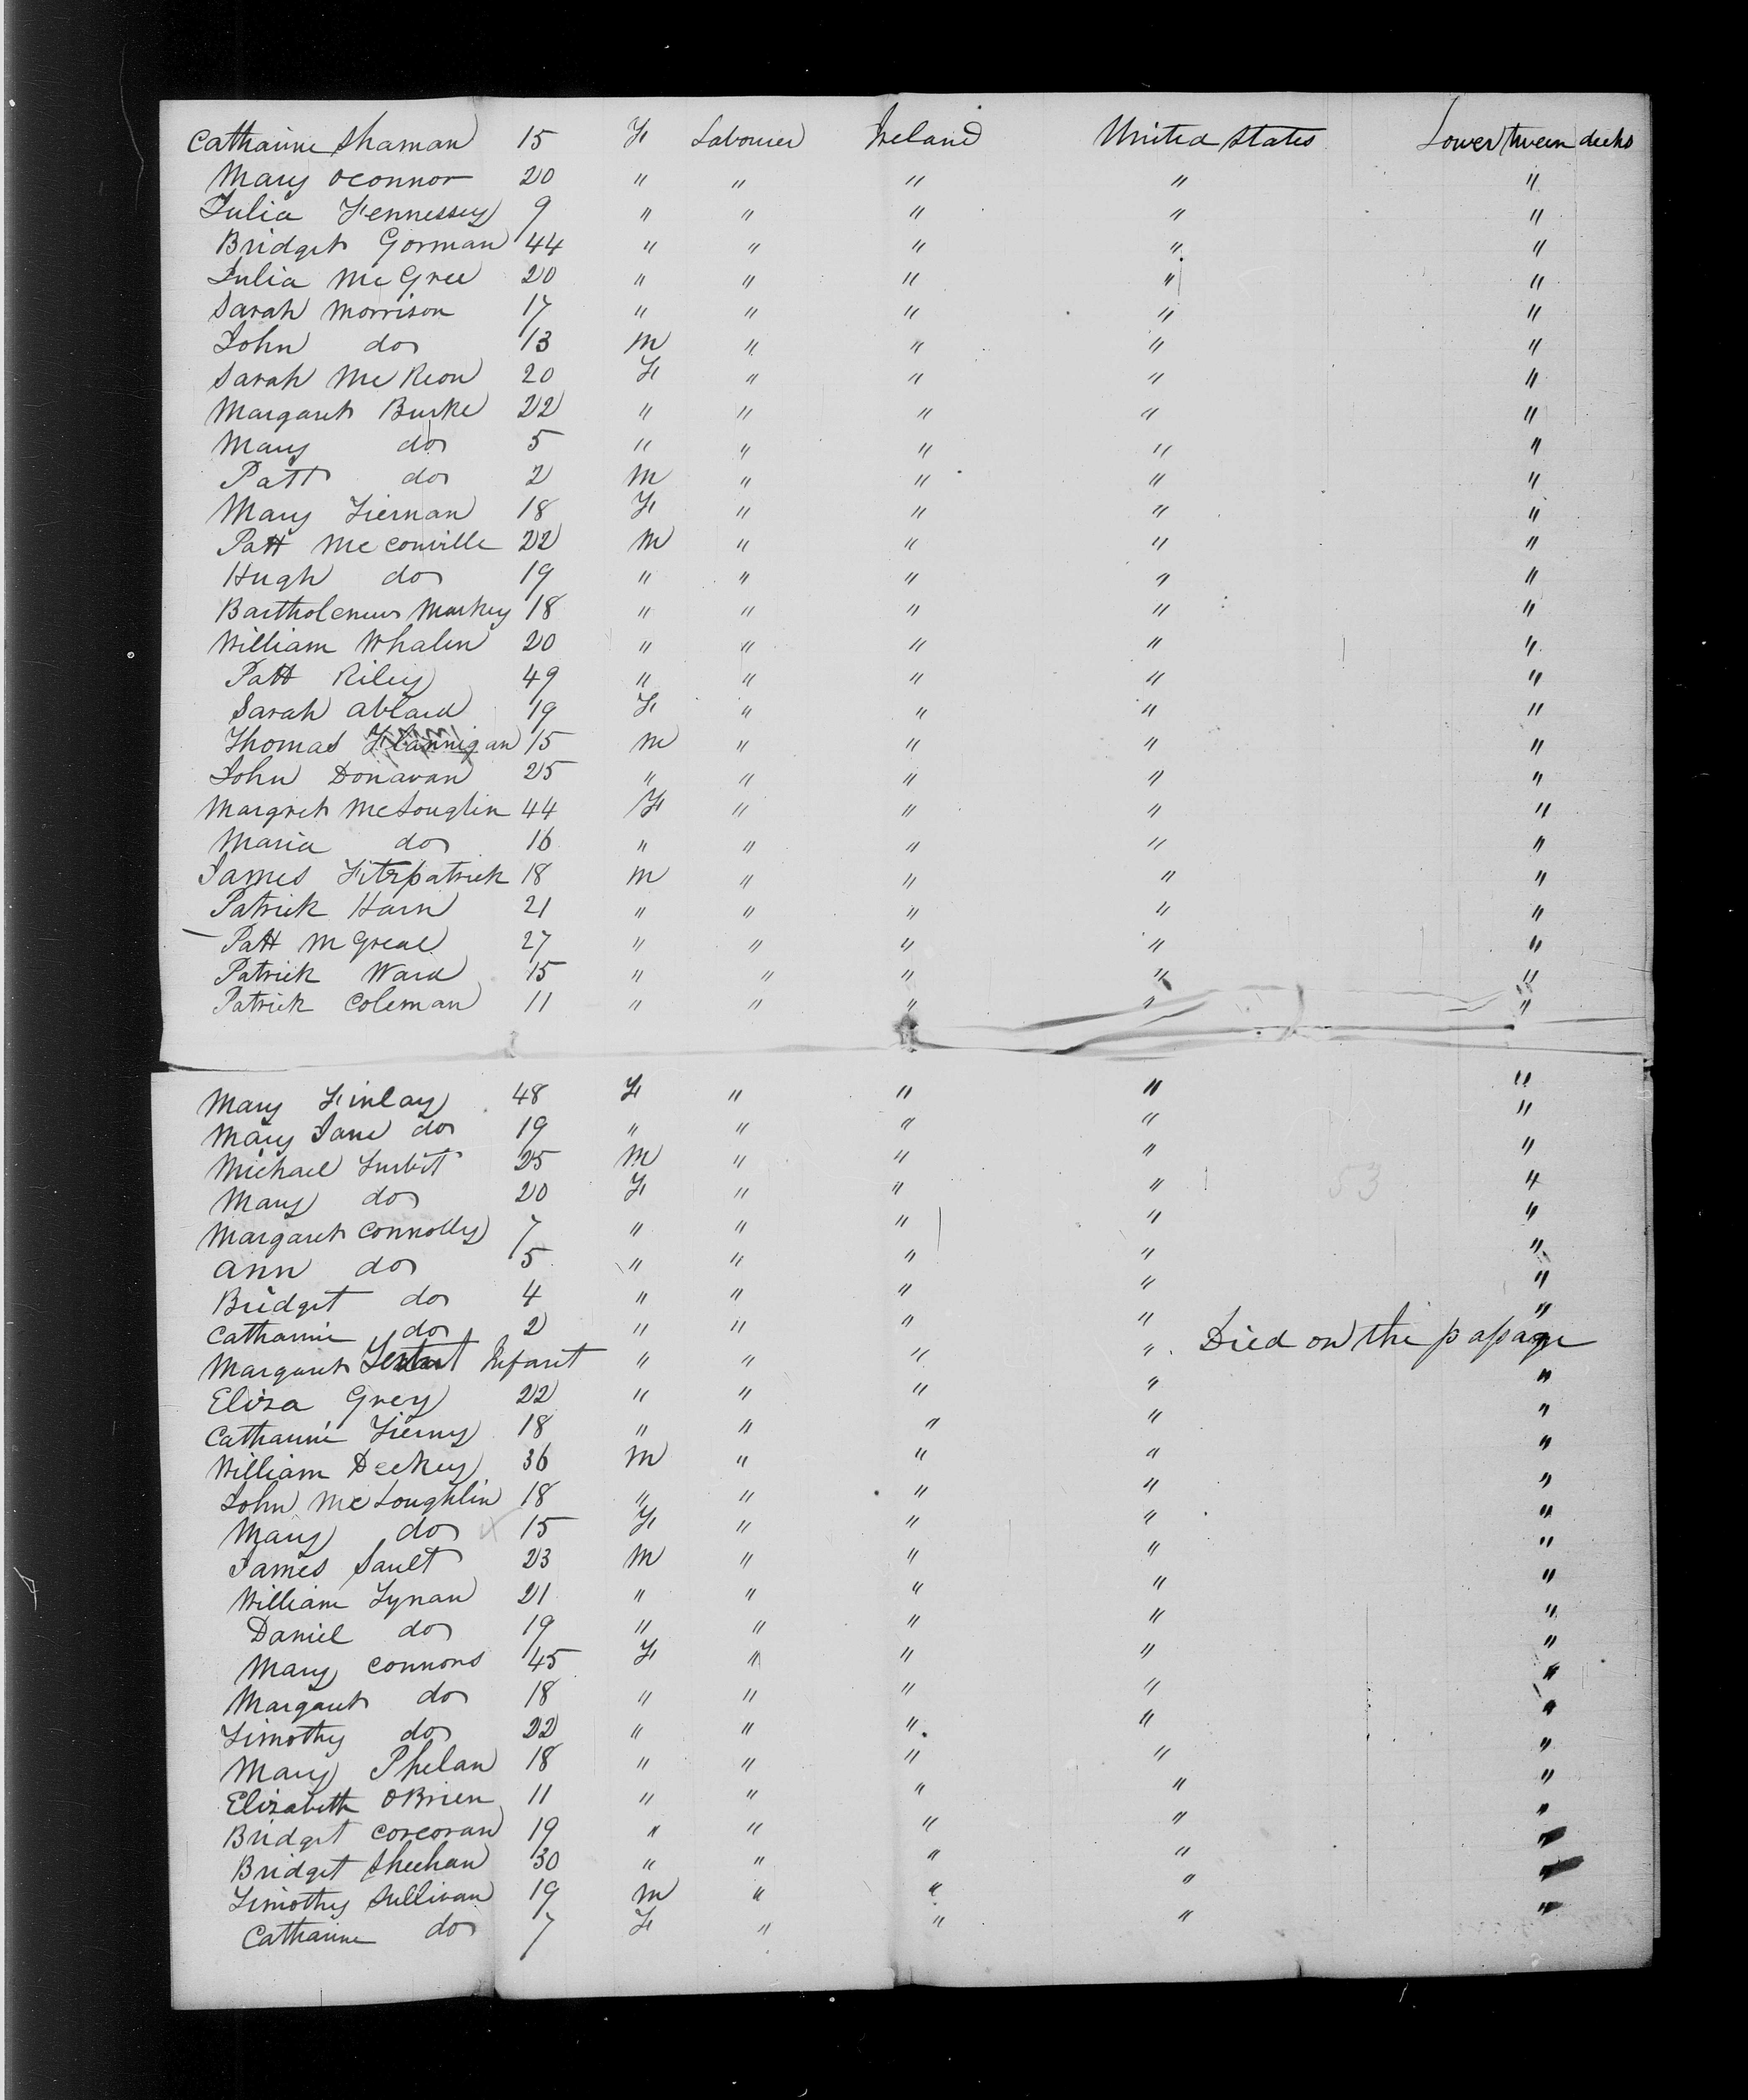 Catharine Shaman 15 F Labourer Ireland United States Lower tween decks
Mary oconnor 20 " " " " "
Julia Fennessey 9 " " " " "
Bridget Gorman 44 " " " " "
Julia McGree 20 " " " " "
Sarah Morrison 17 " " " " "
John do 13 M " " " "
Sarah McKeon 20 F " " " "
Margaret Burke 22 " " " " "
Mary do 5 " " " " "
Patt do 2 M " " " "
Mary Tiernan 18 F " " " "
Patt McConville 22 M " " " "
Hugh do 19 " " " " "
Bartholemew Markey 18 " " " " "
William Whalen 20 " " " " "
Patt Riley 49 " " " " "
Sarah Ablard 19 F " " " "
Thomas Flannigan 15 M " " " "
John Donavan 25 " " " " "
Margret McLouglin 44 F " " " "
Maria do 16 " " " " "
James Fitzpatrick 18 M " " " "
Patrick Harn 21 " " " " "
Patt McGreal 27 " " " " "
Patrick Ward 15 " " " " "
Patrick Coleman 11 " " " " "
Mary Finlay 48 F " " " "
Mary Jane do 19 " " " " "
Michael 25 M " " " "
Mary do 20 F " " " "
Margaret Connolly 7 " " " " "
Ann do 5 " " " " "
Bridget do 4 " " " " "
Catharine do 2 " " " " "
Margaret Infant " " " " Died on the passage
Eliza Grey 22 " " " " "
Catharine Tierny 18 " " " " "
William Deekey 36 M " " " "
John McLoughlin 18 " " " " "
Mary do 15 F " " " "
James Sault 23 M " " " "
William Lynan 21 " " " " "
Daniel do 19 " " " " "
Mary Connors 45 F " " " "
Margaret do 18 " " " " "
Timothy do 22 " " " " "
Mary Phelan 18 " " " " "
Elizabeth OBrien 11 " " " " "
Bridget Corcoran 19 " " " " "
Bridget Sheehan 30 " " " " "
Timothy Sullivan 19 M " " " "
Catharine do 7 F " " "